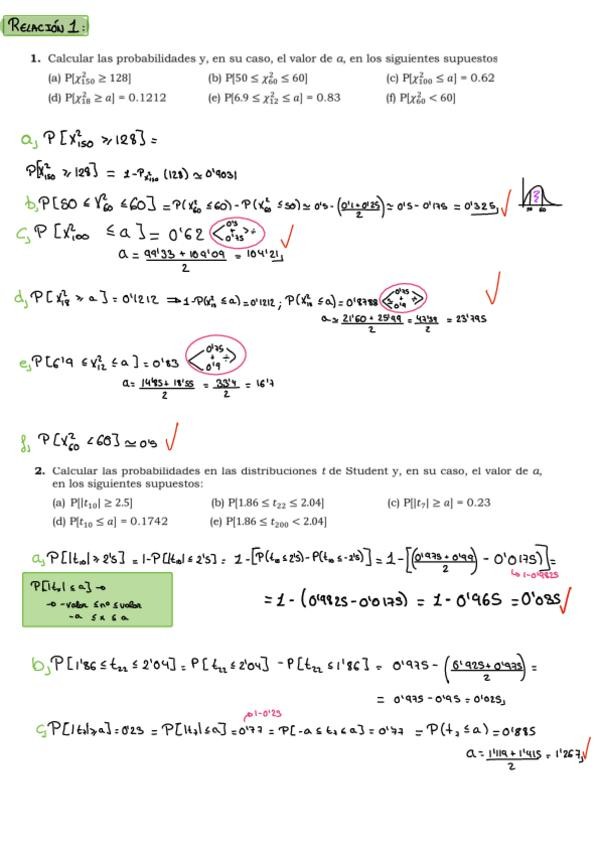 RELACIÓN 1:
1. Calcular las probabilidades y, en su caso, el valor de a, en los siguientes supuestos
(a) P[χ²₁₅₀ ≥ 128] (b) P[50 ≤ χ²₆₀ ≤ 60] (c) P[χ²₁₀₀ ≤ a] = 0.62
(d) P[χ²₁₈ ≥ a] = 0.1212 (e) P[6.9 ≤ χ²₁₂ ≤ a] = 0.83 (f) P[χ²₆₀ < 60]
a) P[X²₁₅₀ ≥ 128] =
P[X²₁₅₀ ≥ 128] = 1 - P_X²₁₅₀ (128) ≃ 0'9031
b) P[50 ≤ X²₆₀ ≤ 60] = P(X²₆₀ ≤ 60) - P(X²₆₀ ≤ 50) ≃ 0'5 - ((0'1 + 0'25)/2) ≃ 0'5 - 0'175 = 0'325
c) P[X²₁₀₀ ≤ a] = 0'62 < 0'5 + 0'75 > ÷
a = (99'33 + 109'09)/2 = 104'21
d) P[X²₁₈ ≥ a] = 0'1212 ⇒ 1 - P(X²₁₈ ≤ a) = 0'1212 ; P(X²₁₈ ≤ a) = 0'8788 < 0'75 + 0'9 > ÷
a ≃ (21'60 + 25'99)/2 = 47'59/2 = 23'795
e) P[6'9 ≤ X²₁₂ ≤ a] = 0'83 < 0'75 + 0'9 > ÷
a = (14'85 + 18'55)/2 = 33'4/2 = 16'7
f) P[X²₆₀ < 60] ≃ 0'5
2. Calcular las probabilidades en las distribuciones t de Student y, en su caso, el valor de a,
en los siguientes supuestos:
(a) P[|t₁₀| ≥ 2.5] (b) P[1.86 ≤ t₂₂ ≤ 2.04] (c) P[|t₇| ≥ a] = 0.23
(d) P[t₁₀ ≤ a] = 0.1742 (e) P[1.86 ≤ t₂₀₀ < 2.04]
a) P[|t₁₀| ≥ 2'5] = 1 - P[|t₁₀| ≤ 2'5] = 1 - [P(t₁₀ ≤ 2'5) - P(t₁₀ ≤ -2'5)] = 1 - [((0'975 + 0'99)/2) - 0'0175)] =
↳ 1 - 0'9825
P[|t₁₀| ≤ a] →
→ -valor ≤ nº ≤ valor
-a ≤ x ≤ a
= 1 - (0'9825 - 0'0175) = 1 - 0'965 = 0'035
b) P[1'86 ≤ t₂₂ ≤ 2'04] = P[t₂₂ ≤ 2'04] - P[t₂₂ ≤ 1'86] = 0'975 - ((0'925 + 0'975)/2) =
= 0'975 - 0'95 = 0'025
→ 1 - 0'23
c) P[|t₇| ≥ a] = 0'23 = P[|t₇| ≤ a] = 0'77 = P[-a ≤ t₇ ≤ a] = 0'77 = P(t₇ ≤ a) = 0'885
a = (1'119 + 1'415)/2 = 1'267